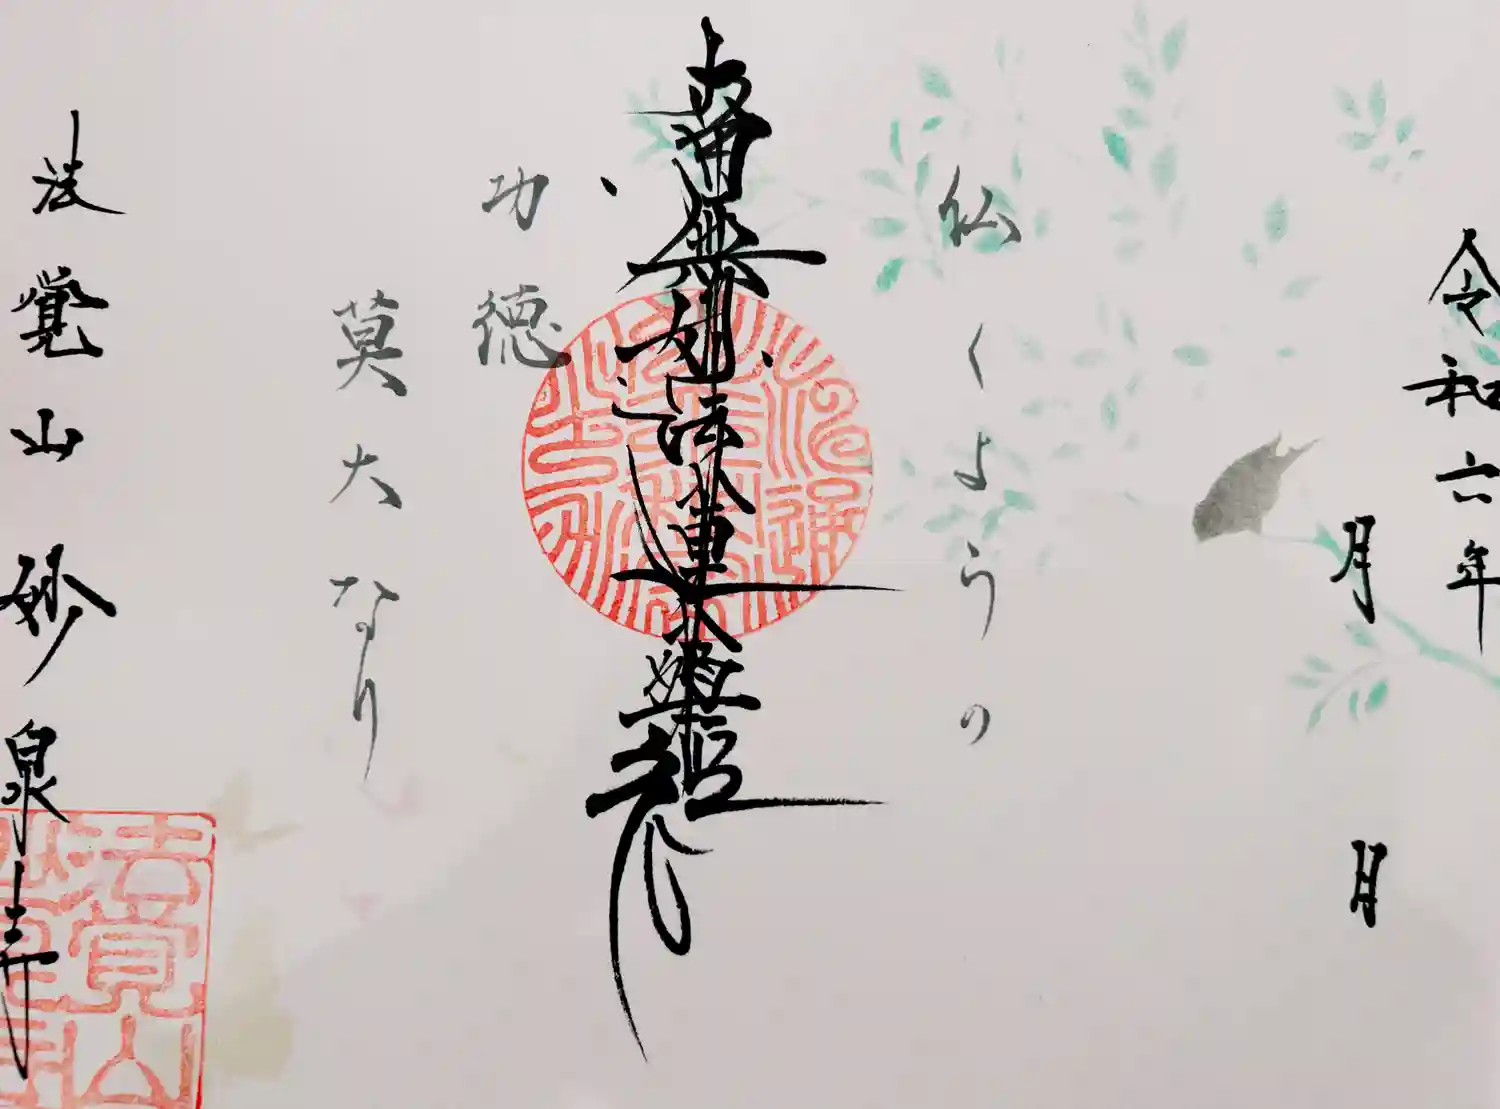 令和六年
月 日
仏くようの
南無妙法蓮華経
功徳
莫大なり
法覺山妙泉寺